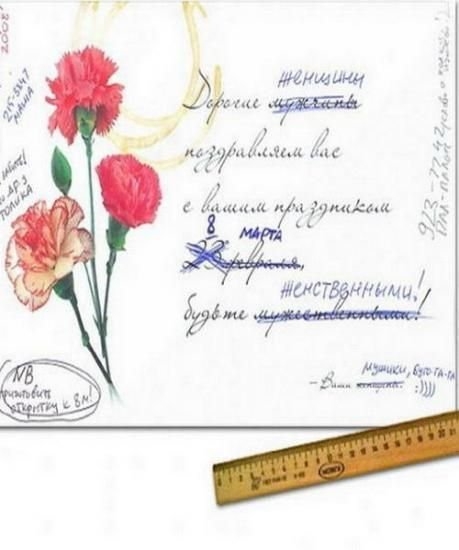 2008
215-5847
МАША
ТОЛИКА
женщины
Дорогие мужчины
поздравляем вас
с вашим праздником
8 МАРТА
23 февраля,
ЖЕНСТВЕННЫМИ!
будьте мужественными!
МУЖИКИ, БУГО-ГА-ГА
– Ваши женщины. :))))
NB
ПРИГОТОВИТЬ
ОТКРЫТКУ К 8М!